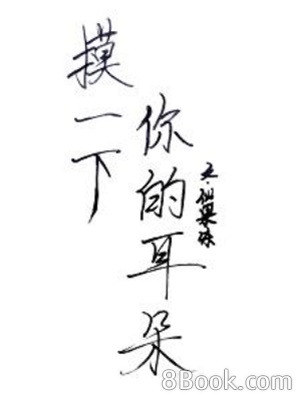 摸一下
你的耳朵
文·仙果味
8Book.com